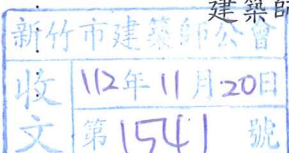 建築師
新竹市建築師公會
收文
112年11月20日
第1541號